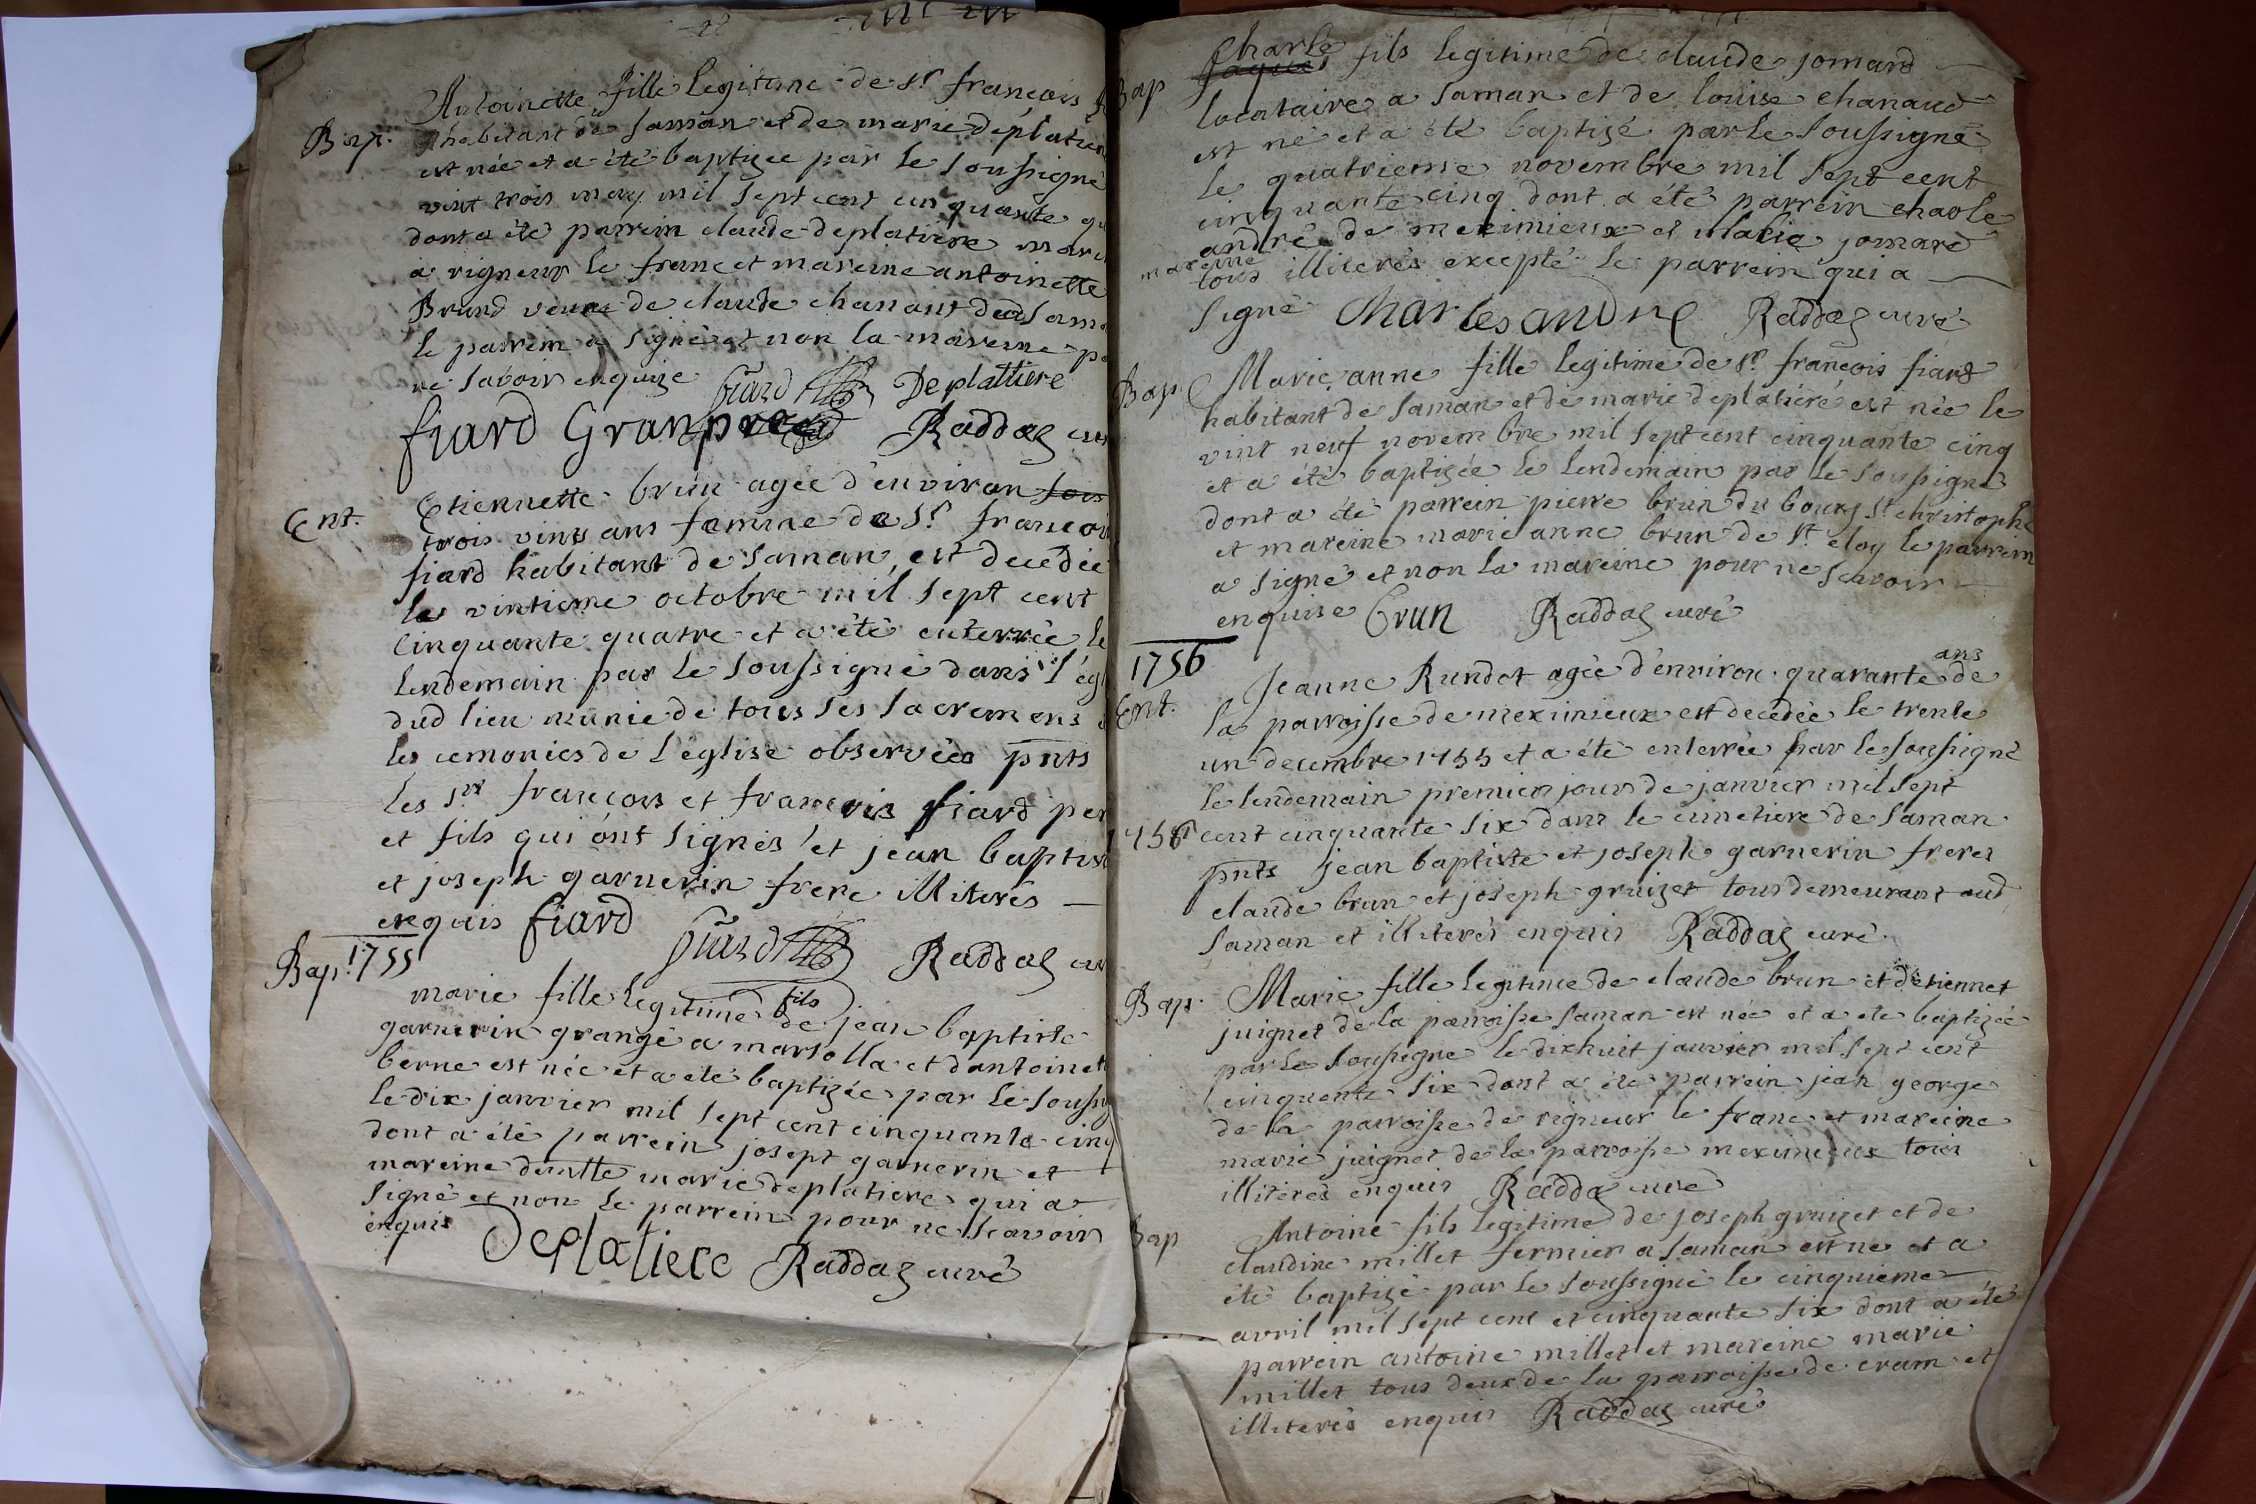 Antoinette fille legitime de Sr francois
Bap. habitant de Saman et de marie deplatiere
est née et a été baptizée par le soussigné
vint trois may mil sept cent cinquante
dont a été parrein claude deplatiere
a rigneux le franc et mareine antoinette
Brund veuve de claude chanaut dud Saman
le parrein a signé et non la mareine
ne savoir enquize fiard Deplattiere
fiard Granpred Raddaz curé
Ent. Etiennette brun agée d'environ
trois vins ans famme de Sr francois
fiard habitant de Saman, est decedée
le vintieme octobre mil sept cent
cinquante quatre et a été enterrée le
lendemain par le soussigné dans l'égl
dud lieu munie de tous ses sacremens
les cemonies de l'eglise observées pnts
les Srs francois et francois fiard per
et fils qui ont signés et jean baptist
et joseph garnerin frere illiterés
enquis fiard fiard fils Raddaz cur
1755
Bap. marie fille legitime de jean baptiste
garnerin grangé a marsolla et dantoinett
berne est née et a été baptizée par le soussig
le dix janvier mil sept cent cinquante cinq
dont a été parrein josept garnerin et
mareine demlle marie deplatiere qui a
signé et non le parrein pour ne scavoir
enquis Deplatiere Raddaz curé
Charle
Bap jaques fils legitime de claude jomard
locataire a Saman et de louise chanaud
est né et a été baptizé par le soussigné
le quatrieme novembre mil sept cent
cinquante cinq dont a été parrein charle
andré de meximieux et mareine marie jomard
tous illiterés excepté le parrein qui a
signé Charles andre Raddaz curé
Bap Marie anne fille legitime de Sr francois fiard
habitant de Saman et de marie deplatiere est née le
vint neuf novembre mil sept cent cinquante cinq
et a été baptizée le lendemain par le soussigné
dont a été parrein pierre brun du bourg St christophe
et mareine marie anne brun de St eloy le parrein
a signé et non la mareine pour ne scavoir
enquise Brun Raddaz curé
1756
Ent. Jeanne Rundet agée d'environ quarante ans de
la parroisse de meximieux est decedée le trente
un decembre 1755 et a été enterrée par le soussigné
le lendemain premier jour de janvier mil sept
1756 cent cinquante six dans le cimetiere de Saman
pnts jean baptiste et joseph garnerin freres
claude brun et joseph gruizet tous demeurant aud
Saman et illiterés enquis Raddaz curé.
Bap. Marie fille legitime de claude brun et d'etiennet
juignet de la parroisse Saman est née et a été baptizée
par le soussigné le dixhuit janvier mil sept cent
cinquante six dont a été parrein jean george
de la parroisse de rigneux le franc et mareine
marie juignet de la parroisse meximieux tous
illiterés enquis Raddaz curé
Bap Antoine fils legitime de joseph gruizet et de
claudine millet fermier a Saman est né et a
été baptizé par le soussigné le cinquieme
avril mil sept cent et cinquante six dont a été
parrein antoine millet et mareine marie
millet tous deux de la parroisse de cram et
illiterés enquis Raddaz curé